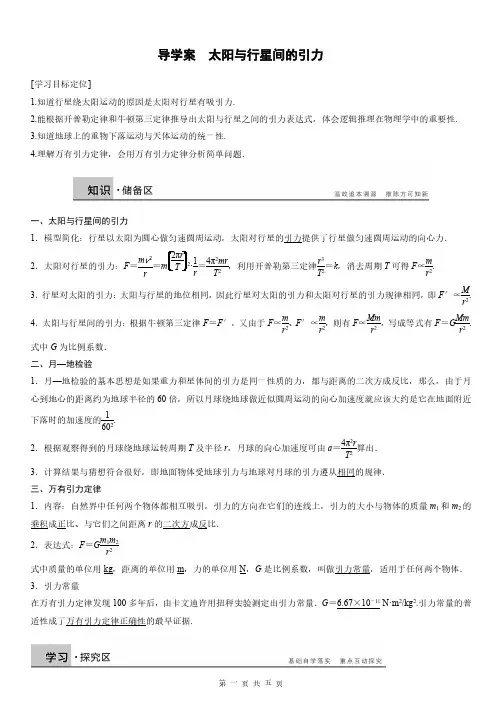 导学案　太阳与行星间的引力
[学习目标定位]
1.知道行星绕太阳运动的原因是太阳对行星有吸引力.
2.能根据开普勒定律和牛顿第三定律推导出太阳与行星之间的引力表达式，体会逻辑推理在物理学中的重要性.
3.知道地球上的重物下落运动与天体运动的统一性.
4.理解万有引力定律，会用万有引力定律分析简单问题.
知识·储备区　温故追本溯源　推陈方可知新
一、太阳与行星间的引力
1．模型简化：行星以太阳为圆心做匀速圆周运动，太阳对行星的引力提供了行星做匀速圆周运动的向心力.
2．太阳对行星的引力：F＝mv²/r＝m(2πr/T)²·1/r＝4π²mr/T²，利用开普勒第三定律r³/T²＝k，消去周期 T 可得 F∝m/r².
3．行星对太阳的引力：太阳与行星的地位相同，因此行星对太阳的引力和太阳对行星的引力规律相同，即 F′∝M/r².
4．太阳与行星间的引力：根据牛顿第三定律 F＝F′，又由于 F∝m/r²、F′∝m/r²，则有 F∝Mm/r²，写成等式有 F＝GMm/r².
式中 G 为比例系数．
二、月—地检验
1．月—地检验的基本思想是如果重力和星体间的引力是同一性质的力，都与距离的二次方成反比，那么，由于月
心到地心的距离约为地球半径的 60 倍，所以月球绕地球做近似圆周运动的向心加速度就应该大约是它在地面附近
下落时的加速度的1/60².
2．根据观察得到的月球绕地球运转周期 T 及半径 r，月球的向心加速度可由 a＝4π²r/T²算出．
3．计算结果与猜想符合很好，即地面物体受地球引力与地球对月球的引力遵从相同的规律．
三、万有引力定律
1．内容：自然界中任何两个物体都相互吸引，引力的方向在它们的连线上，引力的大小与物体的质量 m₁ 和 m₂ 的
乘积成正比、与它们之间距离 r 的二次方成反比．
2．表达式：F＝Gm₁m₂/r²
式中质量的单位用 kg，距离的单位用 m，力的单位用 N，G 是比例系数，叫做引力常量，适用于任何两个物体．
3．引力常量
在万有引力定律发现 100 多年后，由卡文迪许用扭秤实验测定出引力常量．G＝6.67×10⁻¹¹ N·m²/kg².引力常量的普
适性成了万有引力定律正确性的最早证据．
学习·探究区　基础自学落实　重点互动探究
第 一 页 共 五 页